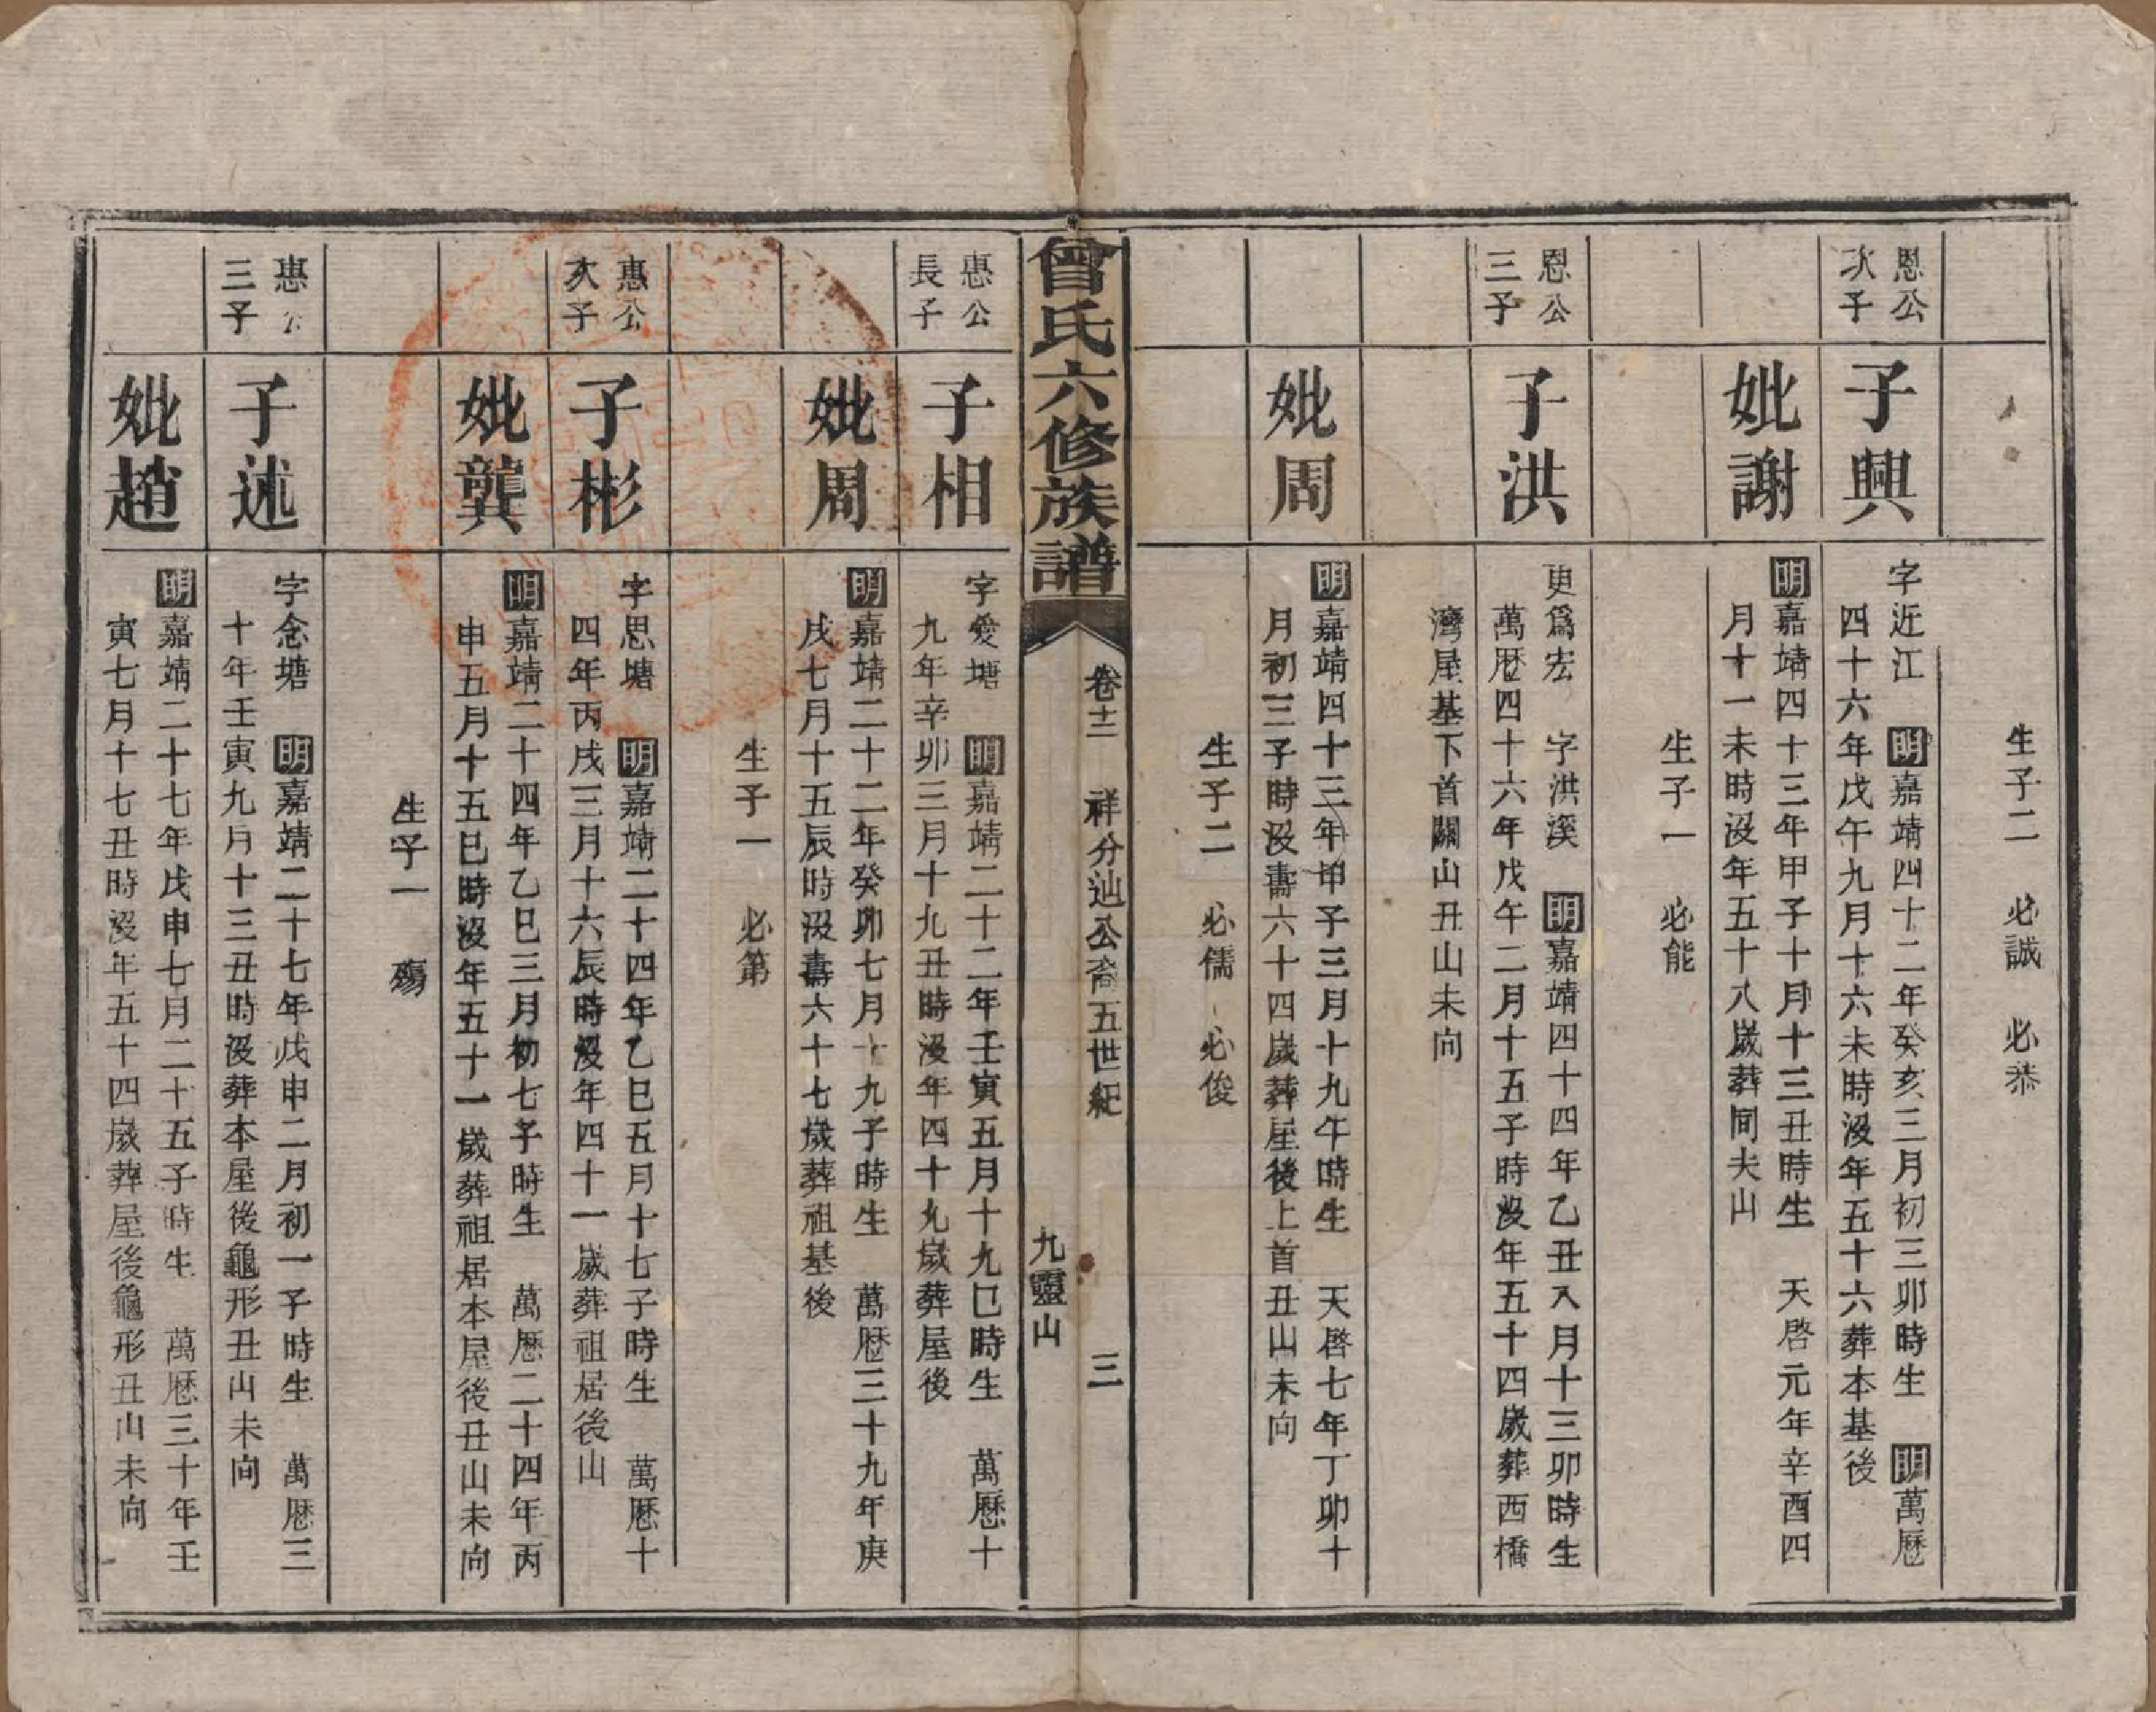 生子二　必誠　必恭
恩公
次子
子興
字近江　明嘉靖四十二年癸亥三月初三卯時生　明萬厯
四十六年戊午九月十六未時沒年五十六葬本基後
妣謝
明嘉靖四十三年甲子十月十三丑時生　天啓元年辛酉四
月十一未時沒年五十八歲葬同夫山
生子一　必能
恩公
三子
子洪
更爲宏　字洪溪　明嘉靖四十四年乙丑八月十三卯時生
萬厯四十六年戊午二月十五子時沒年五十四歲葬西橋
濟屋基下首關山丑山未向
妣周
明嘉靖四十三年甲子三月十九午時生　天啓七年丁卯十
月初三子時沒壽六十四歲葬屋後上首丑山未向
生子二　必儒　必俊
曾氏六修族譜
卷十二　祥分辿公裔五世紀
三
九靈山
惠公
長子
子相
字愛塘　明嘉靖二十二年壬寅五月十九巳時生　萬厯十
九年辛卯三月十九丑時沒年四十九歲葬屋後
妣周
明嘉靖二十二年癸卯七月十九子時生　萬厯三十九年庚
戌七月十五辰時沒壽六十七歲葬祖基後
生子一　必第
惠公
次子
子彬
字思塘　明嘉靖二十四年乙巳五月十七子時生　萬厯十
四年丙戌三月十六辰時沒年四十一歲葬祖居後山
妣龔
明嘉靖二十四年乙巳三月初七子時生　萬厯二十四年丙
申五月十五巳時沒年五十一歲葬祖居本屋後丑山未向
生子一　殤
惠公
三子
子述
字念塘　明嘉靖二十七年戊申二月初一子時生　萬厯三
十年壬寅九月十三丑時沒葬本屋後龜形丑山未向
妣趙
明嘉靖二十七年戊申七月二十五子時生　萬厯三十年壬
寅七月十七丑時沒年五十四歲葬屋後龜形丑山未向